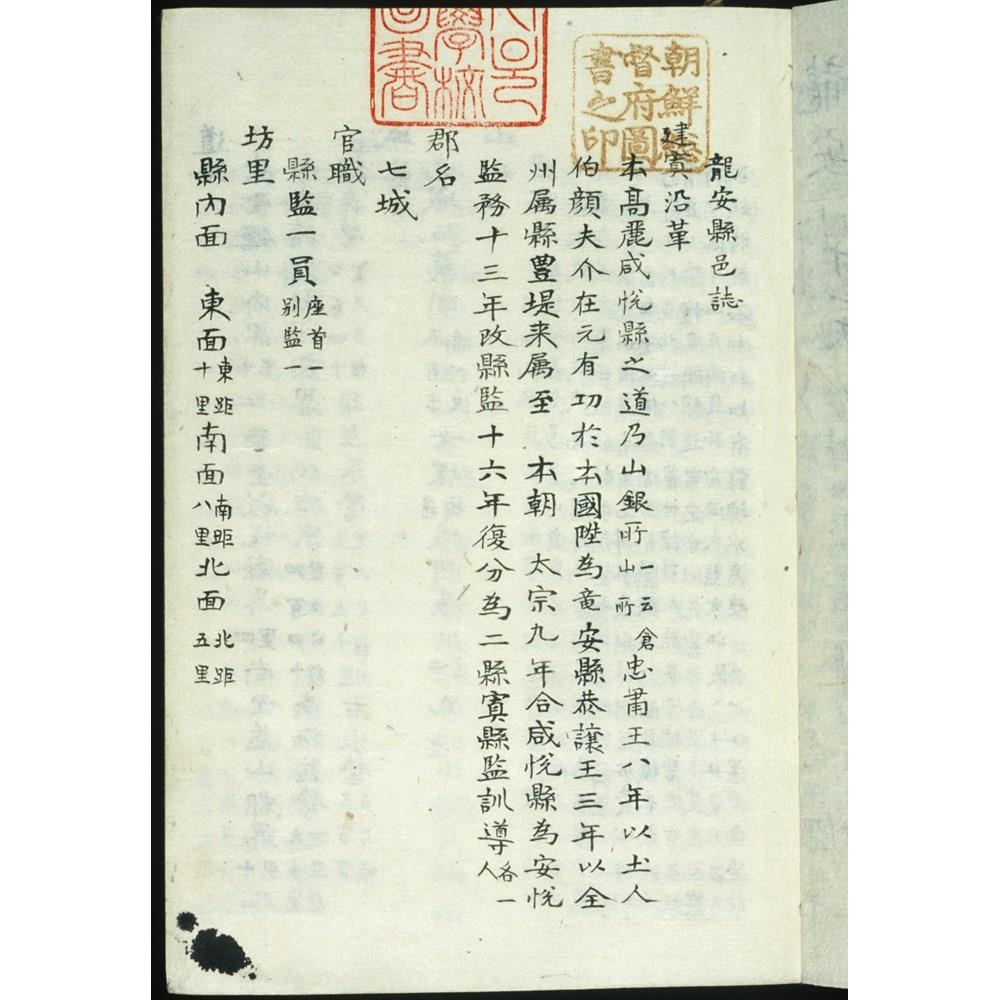 朝鮮總
督府圖
書之印
學校
龍安縣邑誌
建寘沿革
本髙麗咸悅縣之道乃山銀所一云倉山所忠肅王八年以土人
伯顔夫介在元有功於本國陞為竜安縣恭讓王三年以全
州属縣豊堤来属至 本朝 太宗九年合咸悅縣為安悅
監務十三年改縣監十六年復分為二縣寘縣監訓導各一人
郡名
七城
官職
縣監一員座首一别監一
坊里
縣內面 東面東距十里南面南距八里北面北距五里